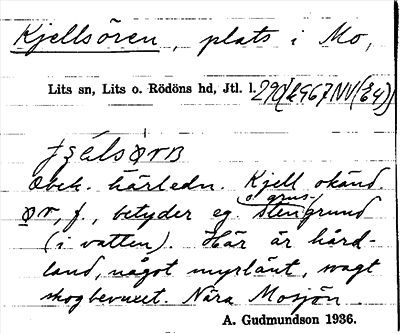 Kjellsören, plats i Mo,
Lits sn, Lits o. Rödöns hd, Jtl. l.
Obek. härledn. Kjell okänd.
o. grus-
ør, f., betyder eg. stengrund
(i vatten). Här är hård-
land, något myrlänt, svagt
skogbevuxet. Nära Mosjön.
A. Gudmundson 1936.